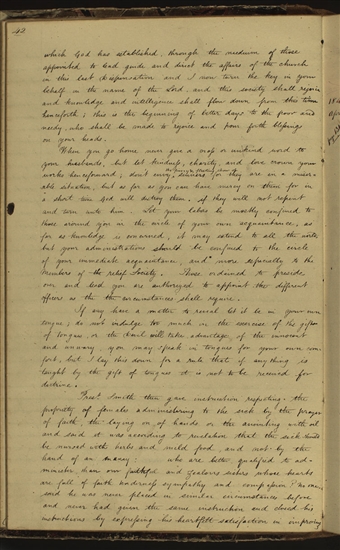 42
which God has established, through the medium of those
appointed to lead guide and direct the affairs of the church
in this last dispensation and I now turn the key in your
behalf in the name of the Lord and this society shall rejoice
and knowledge and intelligence shall flow down from this time
henceforth; this is the beginning of better days to the poor and
needy, who shall be made to rejoice and pour forth blessings
on your heads.
When you go home never give a or unkind word to
your husbands, but let kindness, charity, and love crown your
works henceforward; don't envy sinners for they are in a miser-
able situation, but as far as you can have mercy on them for in
a short time God will destroy them, if they will not repent
and turn unto him. Let your labors be mostly confined to
those around you in the circle of your own acquaintance, as
far as knowledge is concerned, it may extend to all the world
but your administrations should be confined to the circle
of your immediate acquaintance, and more especially to the
members of the relief Society. Those ordained to preside
over and lead you are authorized to appoint the different
officers as the the circumstances shall require.
If any have a matter to reveal let it be in your own
tongue; do not indulge too much in the exercise of the gift
of tongues, or the devil will take advantage of the innocent
and unwary. you may speak in tongues for your own com-
fort, but I lay this down for a rule that if any thing is
taught by the gift of tongues it is not to be received for
doctrine.
Prest Smith then gave instruction respecting the
propriety of females administering to the sick by the prayer
of faith, the laying on of hands or the anointing with oil
and said it was according to revelation that the sick should
be nursed with herbs and mild food, and not by the
hand of an enemy; who are better qualified to ad-
minister than our faithful and zealous sisters whose hearts
are full of faith tenderness sympathy and compassion? No one,
said he was never placed in similar circumstances before
and never had given the same instruction and closed his
instructions by expressing his heartfelt satisfaction in improving